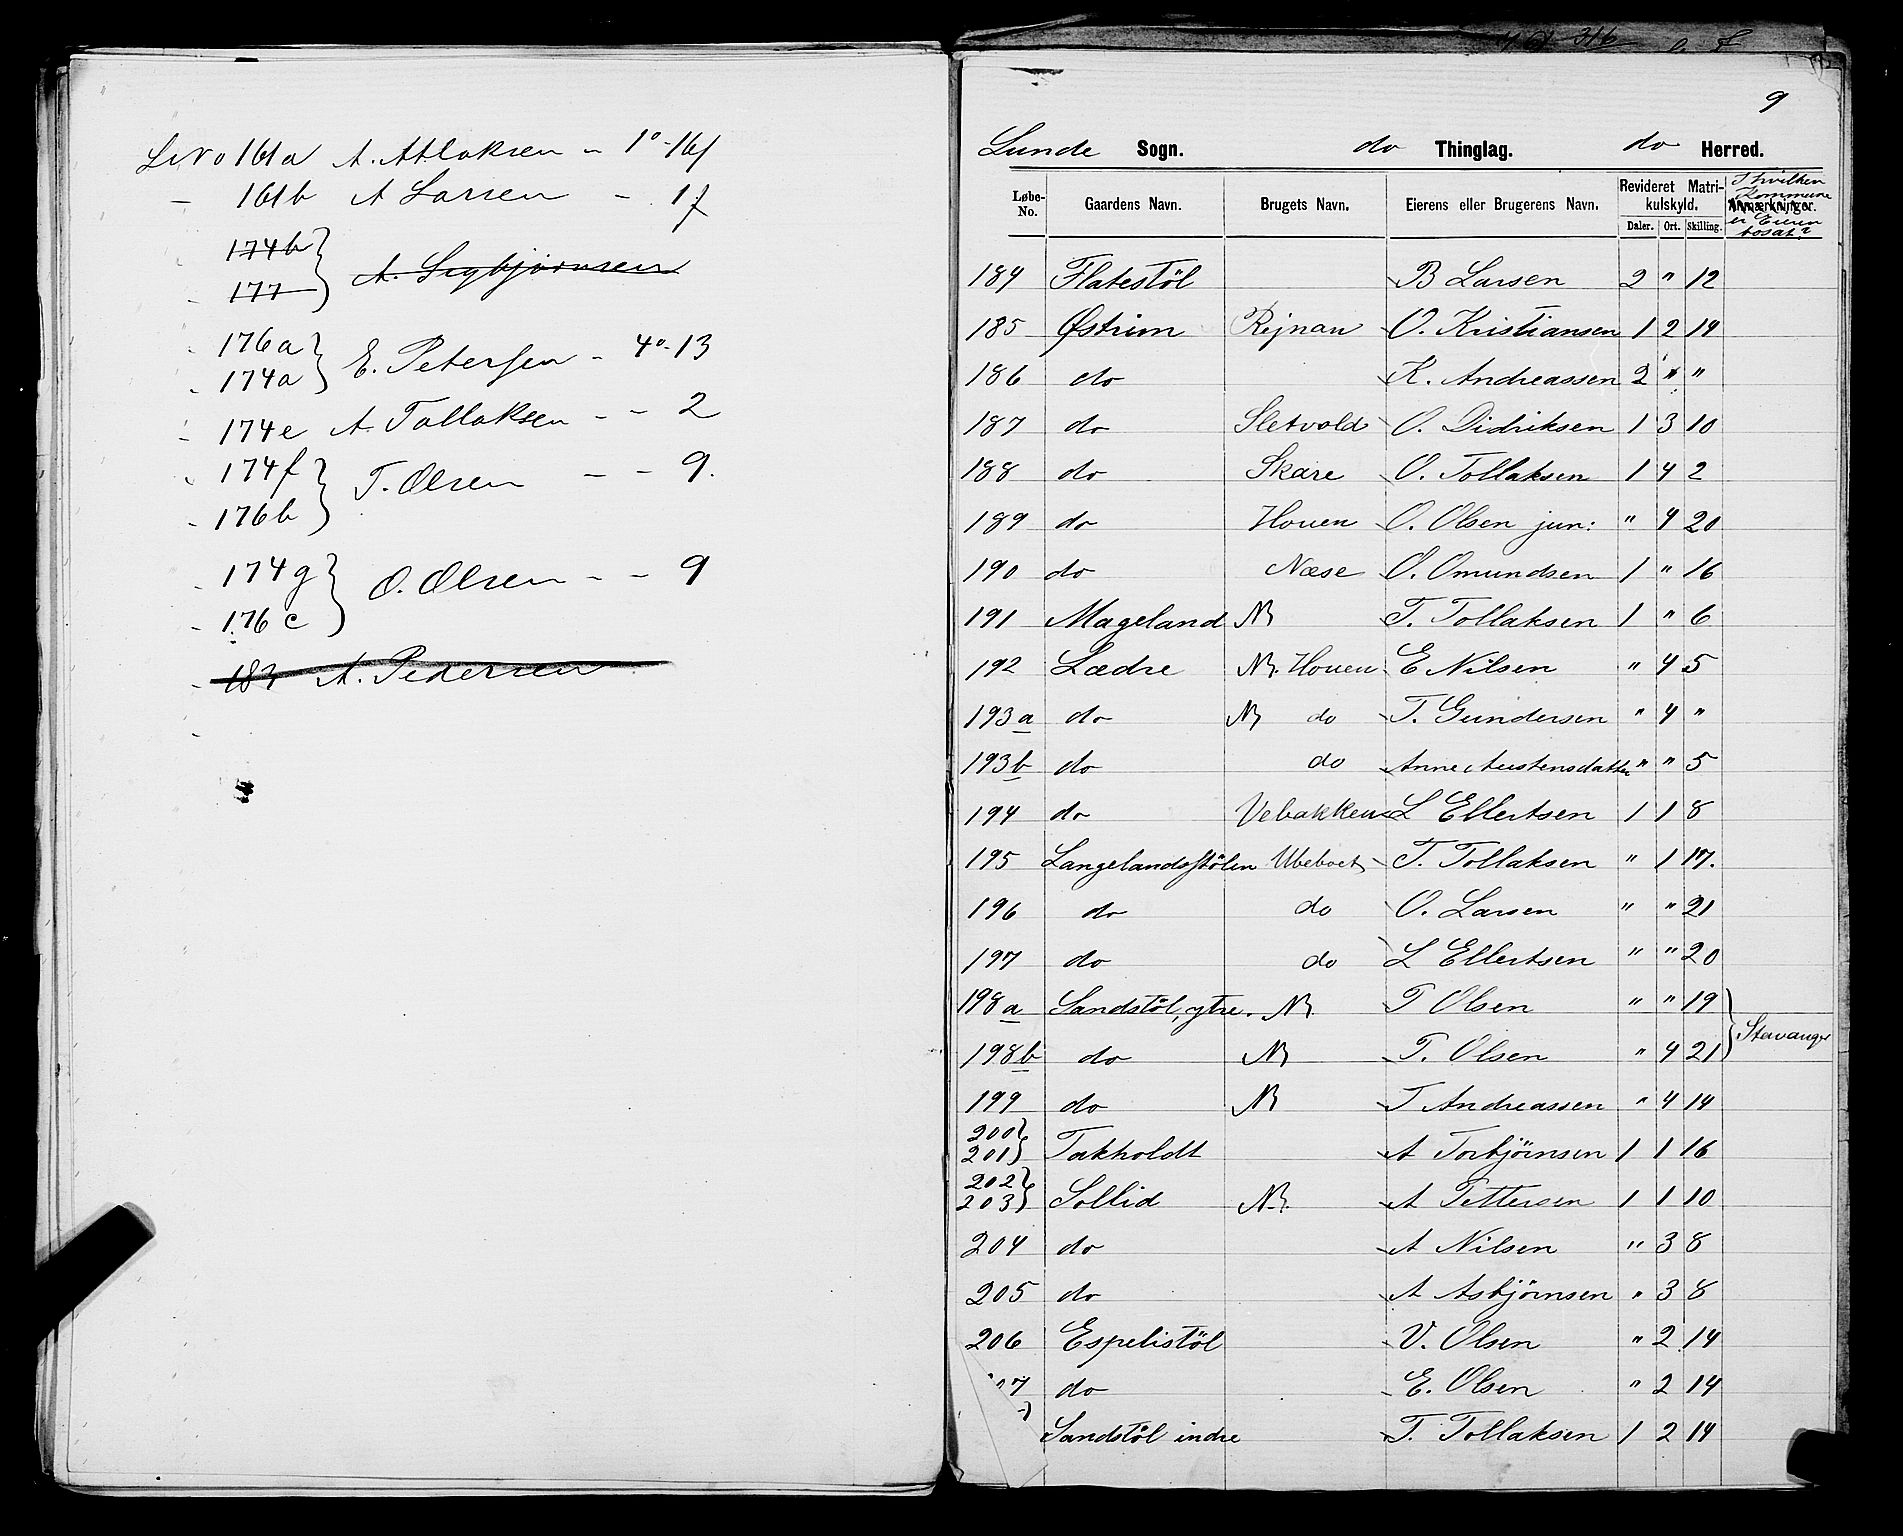 LNo 161a A. Atlaksen – 1°-16
– 161b A Larsen – 17
174b
177 } A. Sigbjørnsen
176a
174a } E. Petersen – 4°-13
174e A. Tollaksen – – 2
174f
176b } T. Olsen – – 9.
174g
176c } O. Olsen – – 9
183 A. Pedersen
9
Lunde Sogn. do Thinglag. do Herred.
Løbe-No. Gaardens Navn. Brugets Navn. Eierens eller Brugerens Navn. Revideret Matrikulskyld. Anmærkninger.
I hvilken Kommune er Eieren bosat?
Daler. Ort. Skilling.
184 Flatestöl B Larsen 2 " 12
185 Østrim Rejnan O. Kristiansen 1 2 14
186 do K. Andreassen 2 " "
187 do Sletvold O. Didriksen 1 3 10
188 do Skare O. Tollaksen 1 4 2
189 do Houen O. Olsen jun: " 4 20
190 do Næse O. Omundsen 1 " 16
191 Mageland NB T. Tollaksen 1 " 6
192 Lædre NB. Houen E Nilsen " 4 5
193a do NB do T. Gundersen " 4 "
193b do do Anne Austensdatter " " 5
194 do Vebakken L Ellertsen 1 1 8
195 Langelandsstølen Ubeboet T. Tollaksen " 1 17.
196 do do O. Larsen " " 21
197 do do L Ellertsen " " 20
198a Sandstöl, ytre. NB T Olsen " " 19
198b do NB T. Olsen " 4 21 } Stavanger
199 do NB T Andreassen " 4 14
200
201 } Takholdt A Torbjörnsen 1 1 16
202
203 } Sollid NB. A Pettersen 1 1 10
204 do A Nilsen " 3 8
205 do A Asbjörnsen " 3 8
206 Espelistöl V. Olsen " 2 14
7 do E. Olsen " 2 14
Sandstöl indre T. Tollaksen 1 2 14